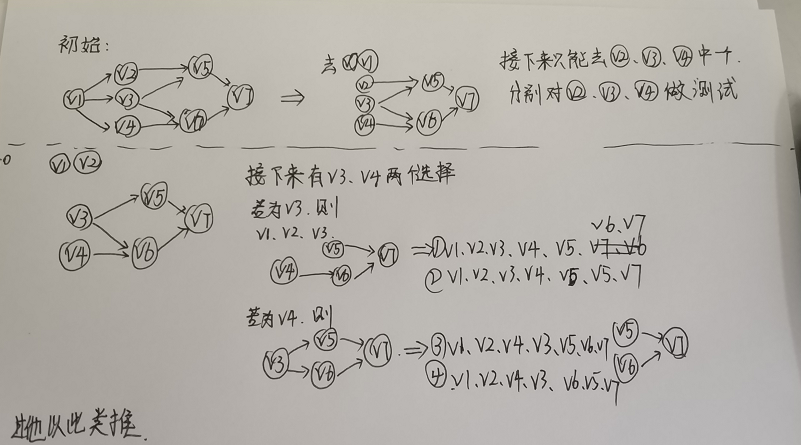 初始:
V1 V2 V3 V4 V5 V6 V7
⇒
去 V1
V2 V3 V4 V5 V6 V7
接下来只能去V2、V3、V4中一个.
分别对V2、V3、V4做测试
V1 V2
V3 V4 V5 V6 V7
接下来有V3、V4两个选择
若为V3.则
V1、V2、V3.
V4 V5 V6 V7
V6、V7
⇒①V1、V2、V3、V4、V5、
②V1、V2、V3、V4、V6、V5、V7
若为V4.则
V3 V5 V6 V7
⇒③V1、V2、V4、V3、V5、V6、V7
④V1、V2、V4、V3、V6、V5、V7
V5 V6 V7
其他以此类推.